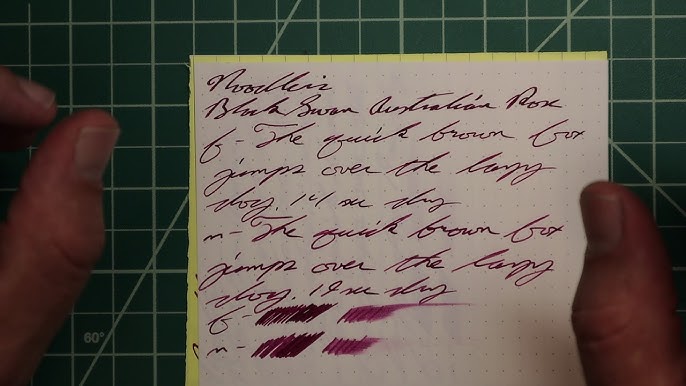 Noodler's
Black Swan Australian Rose
f - The quick brown fox
jumps over the lazy
dog. 14 sec dry
m - The quick brown fox
jumps over the lazy
dog. 12 sec dry
f -
m -
60°